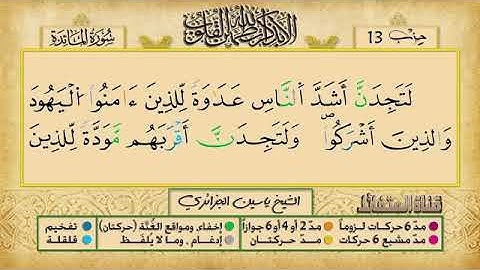 حزب 13
ألا بذكر الله تطمئن القلوب
سُورَةُ المَائِدَة
لَتَجِدَنَّ أَشَدَّ اَلنَّاسِ عَدَٰوَةٗ لِّلذِينَ ءَامَنُواْ اُ۬لْيَهُودَ
وَالذِينَ أَشْرَكُواْۖ وَلَتَجِدَنَّ أَقْرَبَهُم مَّوَدَّةٗ لِّلذِينَ
الشيخ ياسين الجزائري
مدّ 6 حركات لزوماً مدّ 2 أو 4 أو 6 جوازاً إخفاء، ومواقع الغُنَّة (حركتان) تفخيم
مدّ مشبع 6 حركات مدّ حركتان إدغام، وما لا يُلفَظ قلقلة